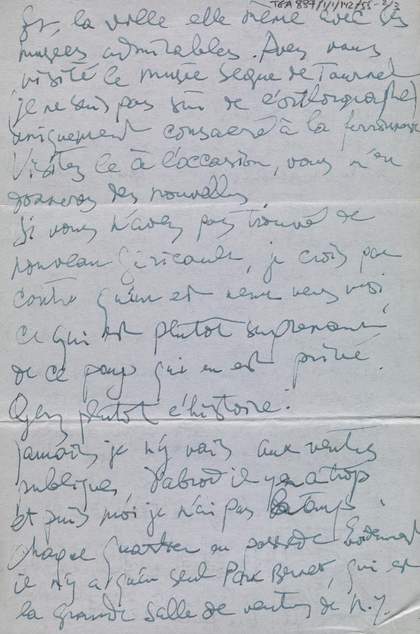 TGA 897/1/1/142/55-2/3
Et, la ville elle même avec les
musées admirables. Avez vous
visité le musée Seque de Tournel
(je ne suis pas sûr de l'orthographe)
uniquement consacré à la ferronnerie
Visitez le à l'occasion, vous m'en
donnerez des nouvelles
Si vous n'avez pas trouvé de
nouveau Géricault, je crois par
contre qu'un est venu vers moi
ce qui est plutôt surprenant
de ce pays qui en est privé.
Oyez plutôt l'histoire:
Jamais je n'y vais aux ventes
publiques, d'abord il y en a trop
et puis moi je n'ai pas le temps
chaque quartier en possède
il n'y a qu'un seul Park Bernet, qui est
la grande salle de ventes de N.Y.